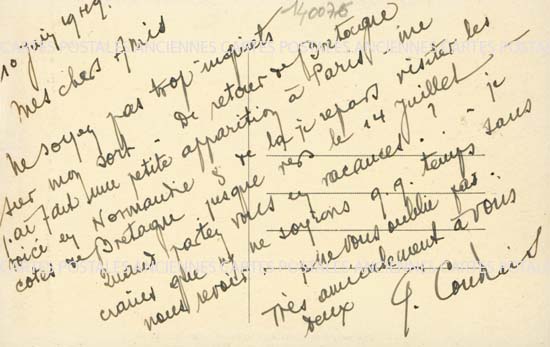 1400715
10 juin 1949.
Mes chers Amis
Ne soyez pas trop inquiets
sur mon sort - De retour de Bretagne
j'ai fait une petite apparition à Paris - me
voici en Normandie & de là je repars visiter les
côtes de Bretagne jusque vers le 14 Juillet -
Quand partez vous en vacances ? - je
crains que ne soyions q.q. temps sans
nous revoir - je ne vous oublie pas.
Très amicalement à vous
deux
CARTES POSTALES ANCIENNES CARTES POSTALES ANCIENNES CARTES POSTALES